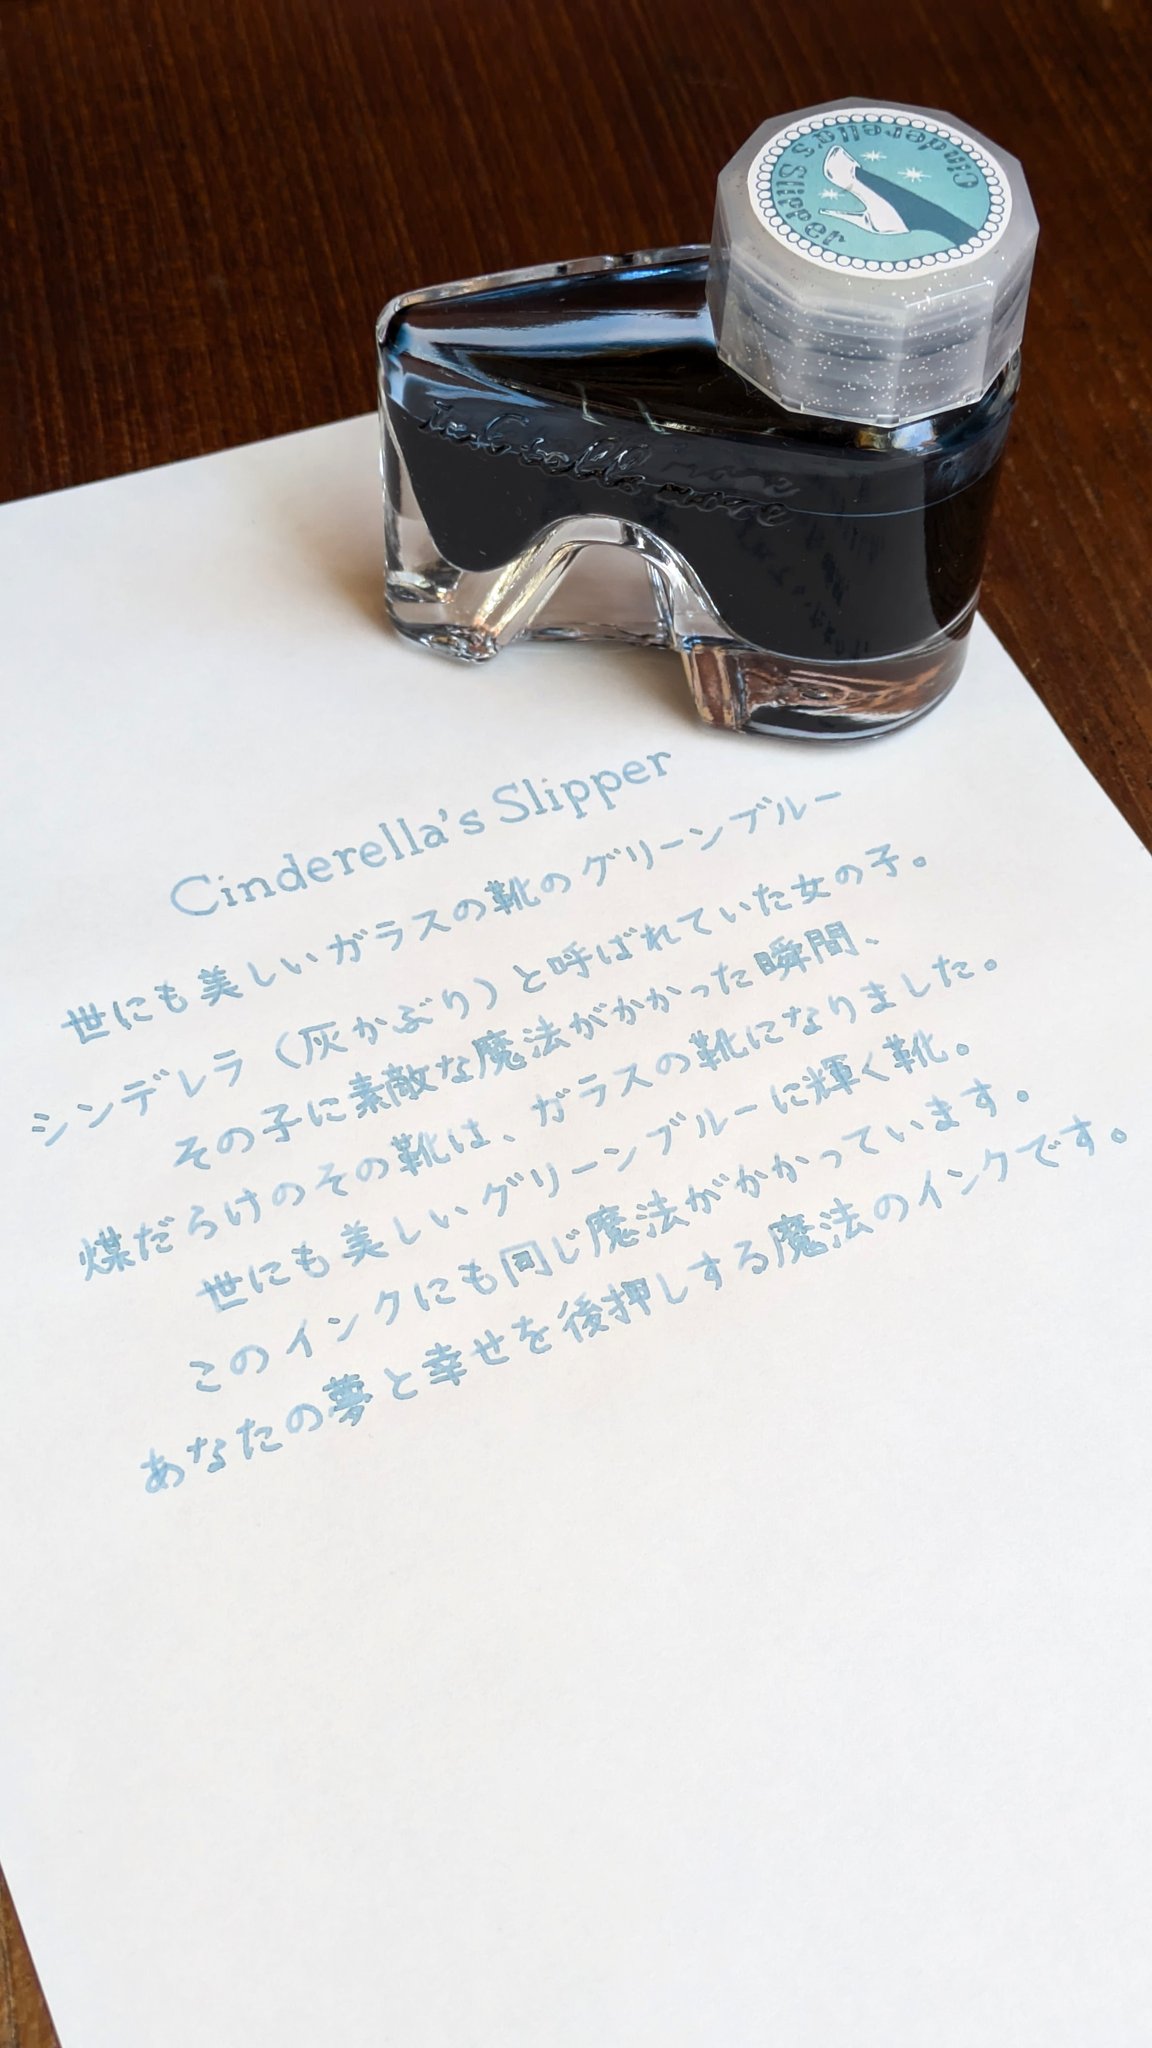 Cinderella's Slipper
Ink to tell more
Cinderella's Slipper
世にも美しいガラスの靴のグリーンブルー
シンデレラ（灰かぶり）と呼ばれていた女の子。
その子に素敵な魔法がかかった瞬間、
煤だらけのその靴は、ガラスの靴になりました。
世にも美しいグリーンブルーに輝く靴。
このインクにも同じ魔法がかかっています。
あなたの夢と幸せを後押しする魔法のインクです。